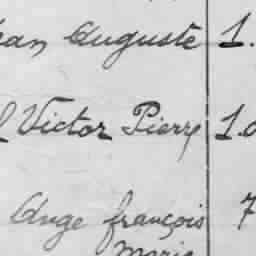 ean Auguste 1.
l Victor Pierre 1.0
Ange françois 7
Marie